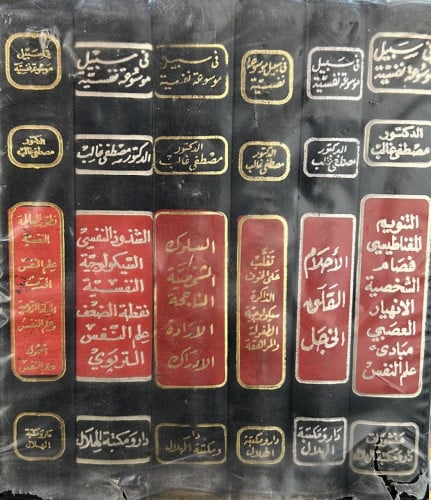 في سبيل
موسوعة نفسية
الدكتور
مصطفى غالب
التنويم
المغناطيسي
فصام
الشخصية
الانهيار
العصبي
مبادىء
علم النفس
منشورات
دار ومكتبة الهلال
في سبيل
موسوعة نفسية
الدكتور
مصطفى غالب
الأحلام
القلق
الخجل
دار ومكتبة
الهلال
في سبيل موسوعة
نفسية
الدكتور
مصطفى غالب
تغلب
على الخوف
الذاكرة
سيكولوجية
الطفولة
والمراهقة
دار ومكتبة
الهلال
في سبيل
موسوعة نفسية
الدكتور
مصطفى غالب
السلوك
الشخصية
الناجحة
الإرادة
الإدراك
دار
ومكتبة الهلال
في سبيل
موسوعة نفسية
الدكتور مصطفى غالب
الشذوذ النفسي
السيكولوجية
النفسية
نقطة الضعف
علم النفس
التربوي
دار ومكتبة الهلال
في سبيل
موسوعة نفسية
الدكتور
مصطفى غالب
النفسية
علم النفس
علم النفس
علم النفس
دار ومكتبة
الهلال